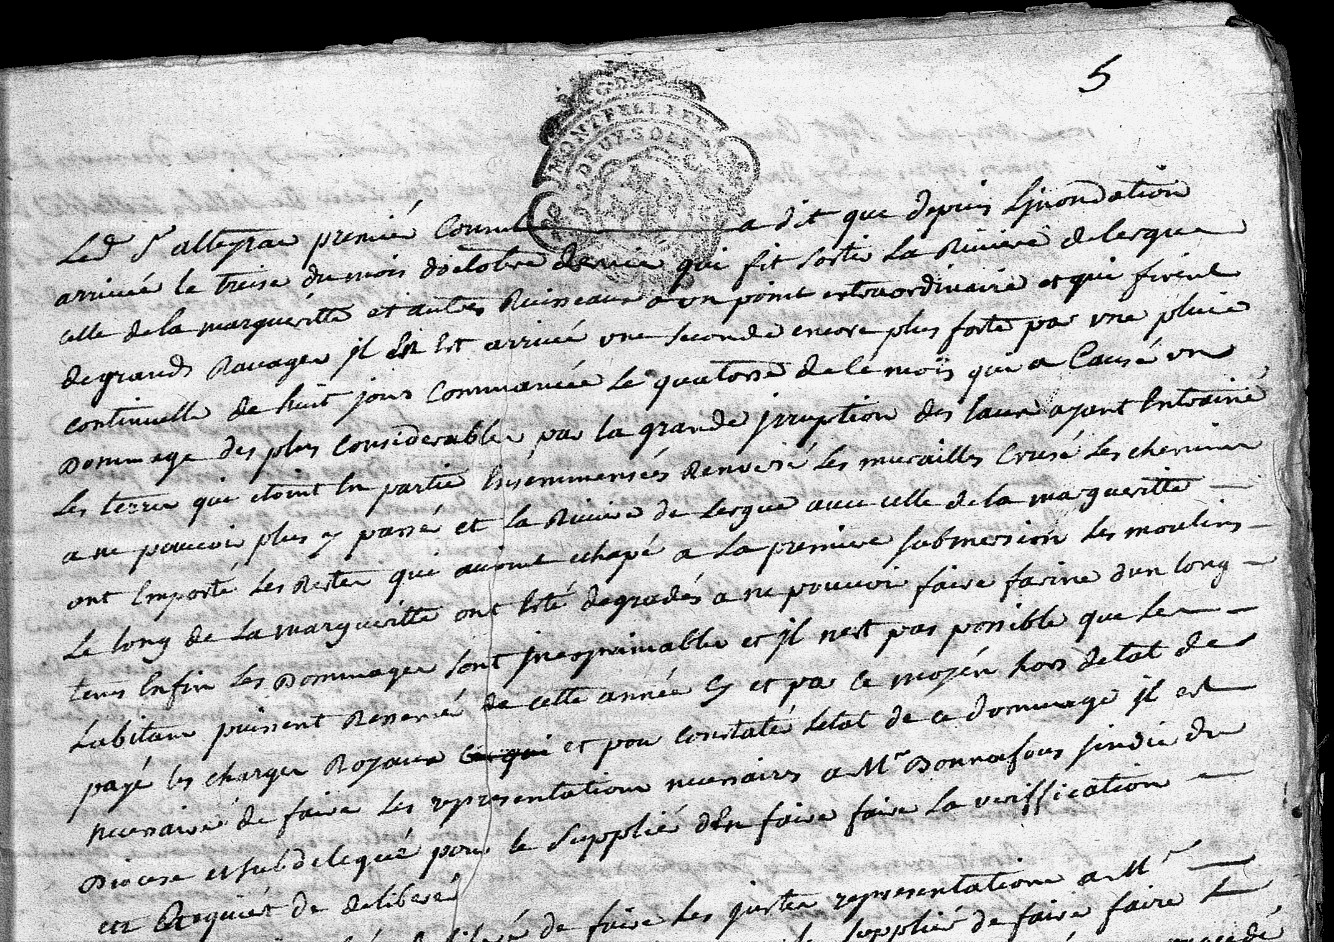 5
MONTPELLIER
DEUX SOLS
Led Sr alleyrac premié Consul a dit que depuis Linondation
arrivée le treise du mois doctobre dernier qui fit sortir La Riviere de lergue
celle de la margueritte et autres Ruisseaux a un point extraordinaire et qui firent
de grands Ravages jl En Est arrivée une seconde encore plus forte par une pluie
continuelle de huit jours Commancée Le quatorse de ce moïs qui a Causé un
Dommage des plus Considerables par la grande jrruption des Eaux ayant Entrainé
Les terres qui etoint En partie Ensemmensées Renversé Les murailles Crusé Les chemins
a ne pouvoir plus y passé et La Riviere de Lergue avec celle de la margueritte
ont Emporté Les Restes qui avoint echapé a La premiere submersion Les moulins
Le long de La margueritte ont Esté degradés a ne pouvoir faire farine dun long
tems Enfin Les Dommages sont jnexprimables et jl nest pas possible que Les
habitans puissent de cette année et par ce moyén hors detat de
payé les charges Royaux et pour Constaté Letat de ce dommage jl est
necessaire de faire Les representations necessaires a Mr Bonnafous sindic du
Diocese et subdelegué pour le supplié d'En faire faire La veriffication
et Requiert de deliberé
de faire Les justes representations a Mr
supplié de faire faire